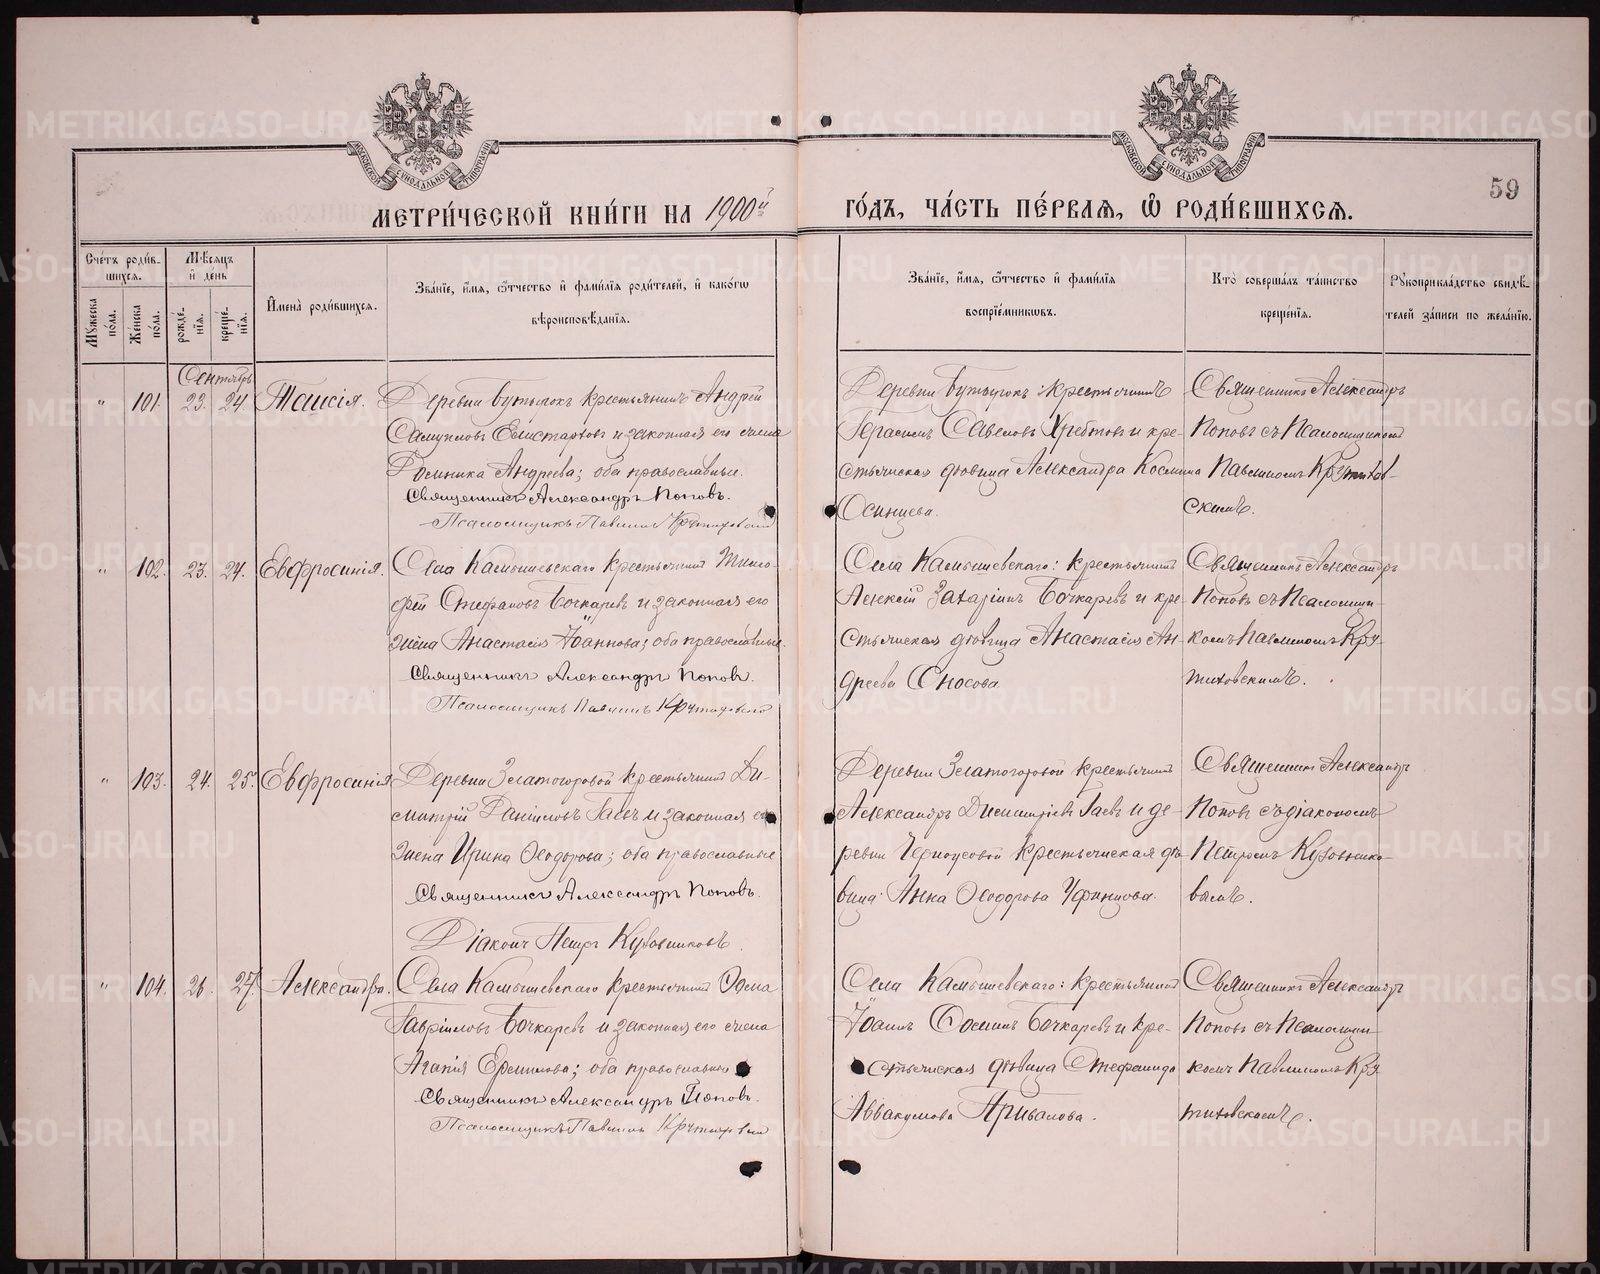 59
МЕТРИ́ЧЕСКОЙ КНИ́ГИ НА 1900й ГО́ДЪ, ЧА́СТЬ ПЕ́РВАѦ, Ѿ РОДИ́ВШИХСѦ.
Сче́тъ роди́в-
шихсѧ.
Мꙋ́жеска по́ла.
Же́нска по́ла.
Мѣ́сѧцъ
и҆ де́нь
рожде́-
нїѧ.
креще́-
нїѧ.
И҆мена̀ роди́вшихсѧ.
Зва́нїе, и҆́мѧ, ѻ҆́тчество и҆ фами́лїѧ роди́телей, и҆ како́гѡ
вѣроисповѣ́данїѧ.
Зва́нїе, и҆́мѧ, ѻ҆́тчество и҆ фами́лїѧ
воспрїе́мникѡвъ.
Кто̀ соверша́лъ та́инство
креще́нїѧ.
Рꙋкоприкла́дство свидѣ́-
телей за́писи по жела́нїю.
Сентябрь
" 101. 23. 24. Таисія.
Деревни Бутырокъ крестьянинъ Андрей
Самуиловъ и законная его жена
Домника Андреева; оба православные.
Священникъ Александръ Поповъ.
Псаломщикъ Павлинъ Крутиховскій
Деревни Бутырокъ: крестьянинъ
Герасимъ Савеловъ Хребтовъ и кре-
стьянская дѣвица Александра Космина
Осинцева.
Священникъ Александръ
Поповъ съ Псаломщикомъ
Павлиномъ Крутихов-
скимъ.
" 102. 23. 24. Евфросинія.
Села Камышевскаго крестьянинъ Тимо-
фей Стефановъ Бочкаревъ и законная его
жена Анастасія Іоаннова; оба православные.
Священникъ Александръ Поповъ.
Псаломщикъ Павлинъ Крутиховскій
Села Камышевскаго: крестьянинъ
Алексій Захаріинъ Бочкаревъ и кре-
стьянская дѣвица Анастасія Ан-
дреева Сносова.
Священникъ Александръ
Поповъ съ Псаломщи-
комъ Павлиномъ Кру-
тиховскимъ.
" 103. 24. 25. Евфросинія
Деревни Златогоровой крестьянинъ Ди-
митрій Даніиловъ Гаевъ и законная его
жена Ирина Ѳеодорова; оба православные
Священникъ Александръ Поповъ.
Діаконъ Петръ Кузовниковъ.
Деревни Златогоровой крестьянинъ
Александръ Димитріевъ Гаевъ и де-
ревни Черноусовой крестьянская дѣ-
вица Анна Ѳеодорова Уфинцова.
Священникъ Александръ
Поповъ съ діакономъ
Петромъ Кузовнико-
вымъ.
" 104. 26. 27. Александра.
Села Камышевскаго крестьянинъ Ѳома
Гавріиловъ Бочкаревъ и законная его жена
Агапія Ермилова; оба православные
Священникъ Александръ Поповъ.
Псаломщикъ Павлинъ Крутиховскій
Села Камышевскаго: крестьянинъ
Іоаннъ Ѳоминъ Бочкаревъ и кре-
стьянская дѣвица Стефанида
Аввакумова Привалова.
Священникъ Александръ
Поповъ съ Псаломщи-
комъ Павлиномъ Кру-
тиховскимъ.
METRIKI.GASO-URAL.RU